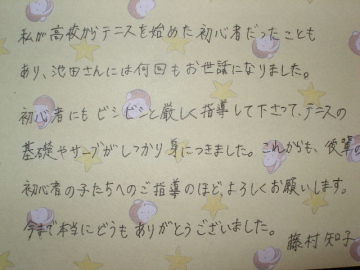 私が高校からテニスを始めた初心者だったことも
あり、池田さんには何回もお世話になりました。
初心者にもビシビシと厳しく指導して下さって、テニスの
基礎やサーブがしっかり身につきました。これからも、後輩の
初心者の子たちへのご指導のほど、よろしくお願いします。
今まで本当にどうもありがとうございました。
藤村 知子